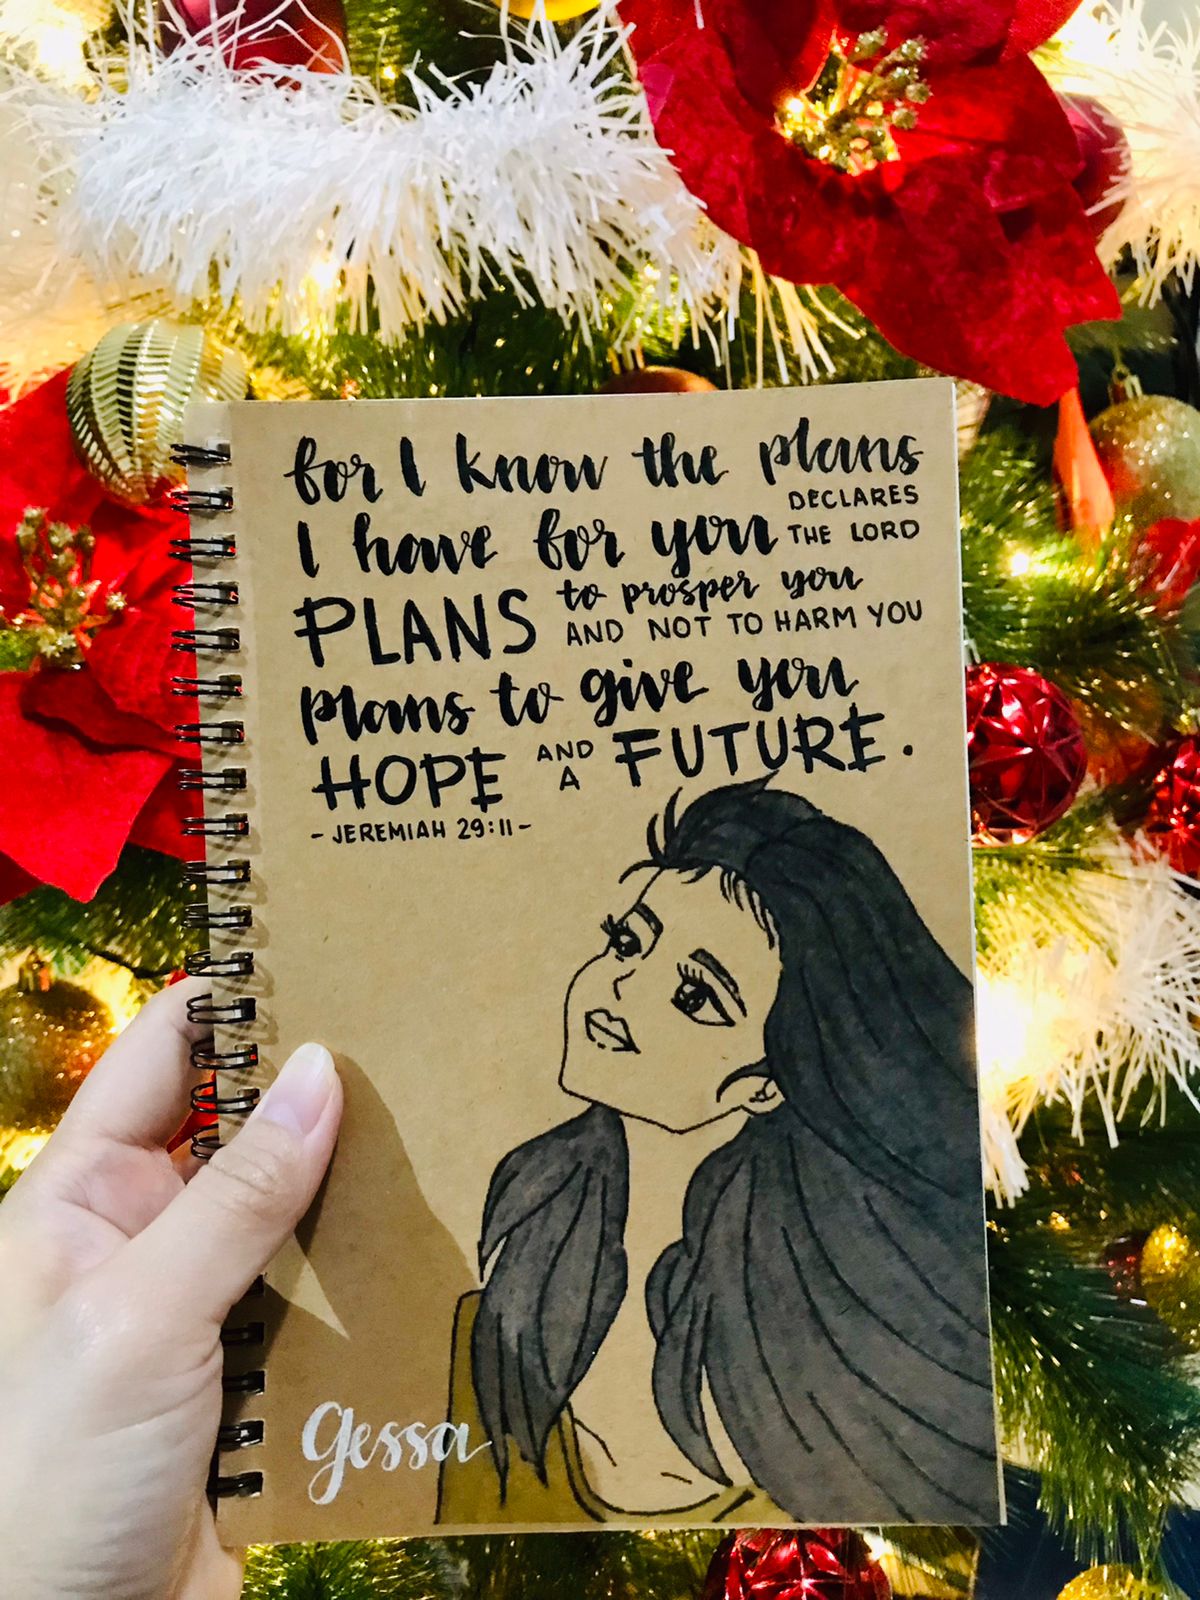 for I know the plans
I have for you DECLARES THE LORD
PLANS to prosper you
AND NOT TO HARM YOU
plans to give you
HOPE AND A FUTURE.
- JEREMIAH 29:11 -
gessa